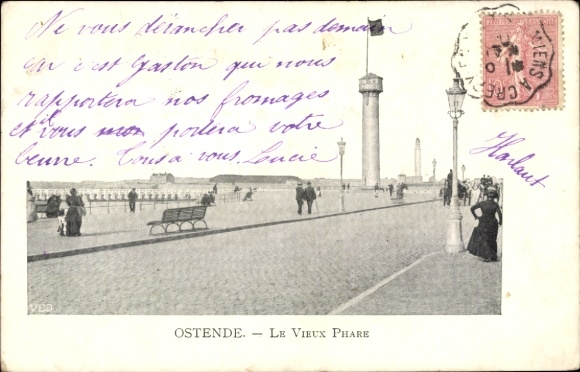 Ne vous dérancher pas demain
car c'est Gaston qui nous
rapportera nos fromages
et il vous portera votre
beurre. Tous a vous. Lucie
Harlaut
MIENS A CRE
VED
OSTENDE. — LE VIEUX PHARE